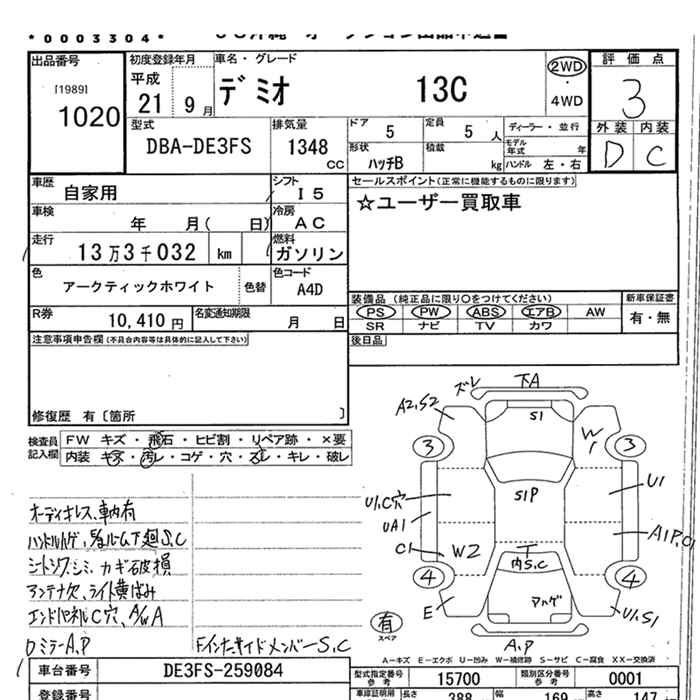 *0003304*
出品番号
[1989]
1020
初度登録年月
平成
21 9月
車名・グレード
デミオ 13C
2WD
・
4WD
評価点
3
外装 内装
D C
型式
DBA-DE3FS
排気量
1348
CC
ドア
5
定員
5人
ディーラー・並行
形状
ハッチB
積載
kg
モデル年式
年
ハンドル 左・右
車歴
自家用
シフト
I5
車検
年 月( 日)
冷房
AC
走行
13万3千032 km
燃料
ガソリン
色
アークティックホワイト
色替
色コード
A4D
R券
10,410円
名変通知期限
月 日
セールスポイント(正常に機能するものに限ります)
☆ユーザー買取車
装備品 (純正品に限り○をつけてください)
PS PW ABS エアB AW
SR ナビ TV カワ
新車保証書
有・無
後日品
注意事項申告欄(不具合内容等は具体的に記入して下さい)
修復歴 有〔箇所 〕
検査員
記入欄
FW キズ・飛石・ヒビ割・リペア跡・×要
内装 キズ・汚レ・コゲ・穴・スレ・キレ・破レ
オーディオレス、車内有
シートシワ、シミ、カギ破損
アンテナ欠、ライト黄ばみ
エンドパネルC穴、A/WA
ロミラーA,P
FインナーサイドメンバーS,C
ズレ
下A
A2,S2
S1
W1
3
3
U1,C穴
UA1
S1P
U1
A1P,C1
C1
W2
内S,C
4
4
E
アルゲ
U1,S1
有
スペア
A,P
A―キズ E―エクボ U―凹み W―補修跡 S―サビ C―腐食 XX―交換済
車台番号
DE3FS-259084
登録番号
型式指定番号
参考
15700
類別区分番号
参考
0001
車庫証明用
参考
長さ
388
幅
169
高さ
147